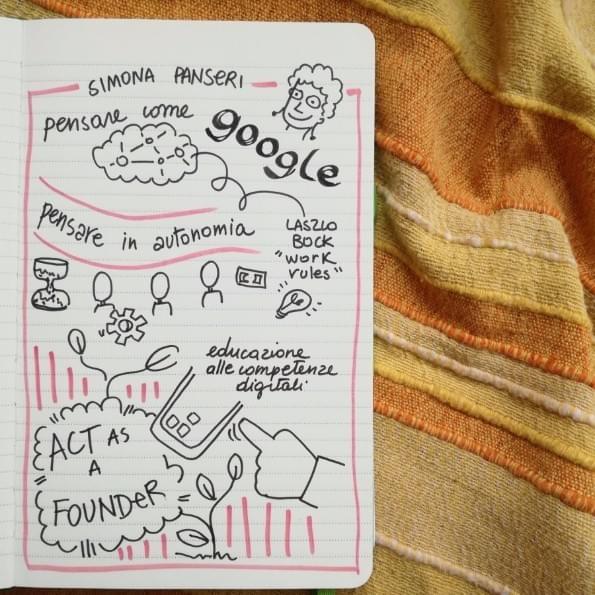 SIMONA PANSERI
pensare come
google
pensare in autonomia
LASZLO
BOCK
"work
rules"
educazione
alle competenze
digitali
ACT AS
A
FOUNDER